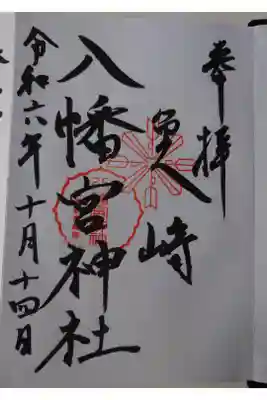 奉拝
魚崎
八幡宮神社
令和六年十月十四日